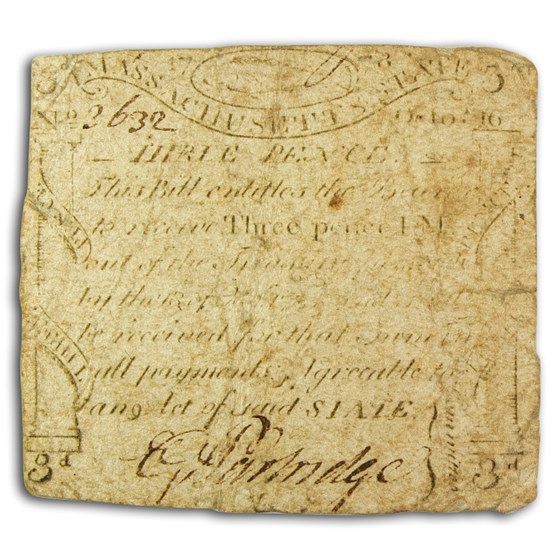 3 17 78 3
MASSACHUSETTS STATE
No 2632 Octo: 16
THREE PENCE.
This Bill entitles the Bearer
to receive Three pence LM
out of the Treasury
by the
be received for that Sum in
all payments, Agreeable to
an Act of said STATE.
E Partridge
3d 3d